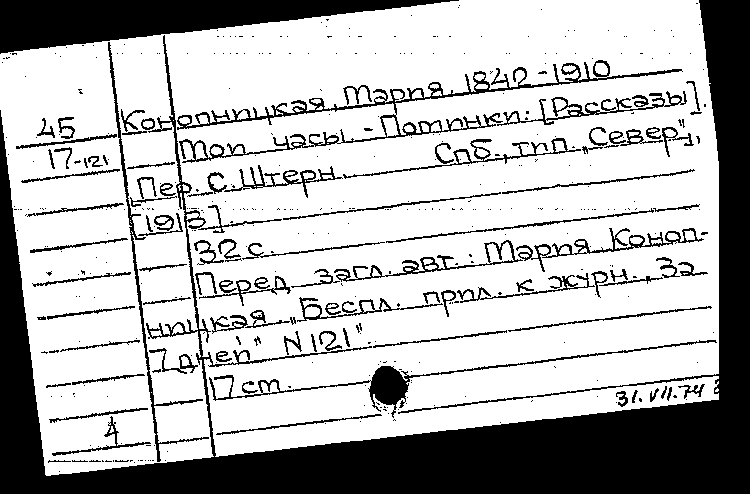 45 Конопницкая, Мария, 1842-1910
17-121 Мои часы. - Потинки. [Рассказы].
Пер. С. Штерн. Спб., тип. "Север",
[1913].
32 с.
Перед загл. авт.: Мария Коноп-
ницкая. "Беспл. прил. к журн. "За
7 дней" N121".
17 cm.
4
31.VII.74